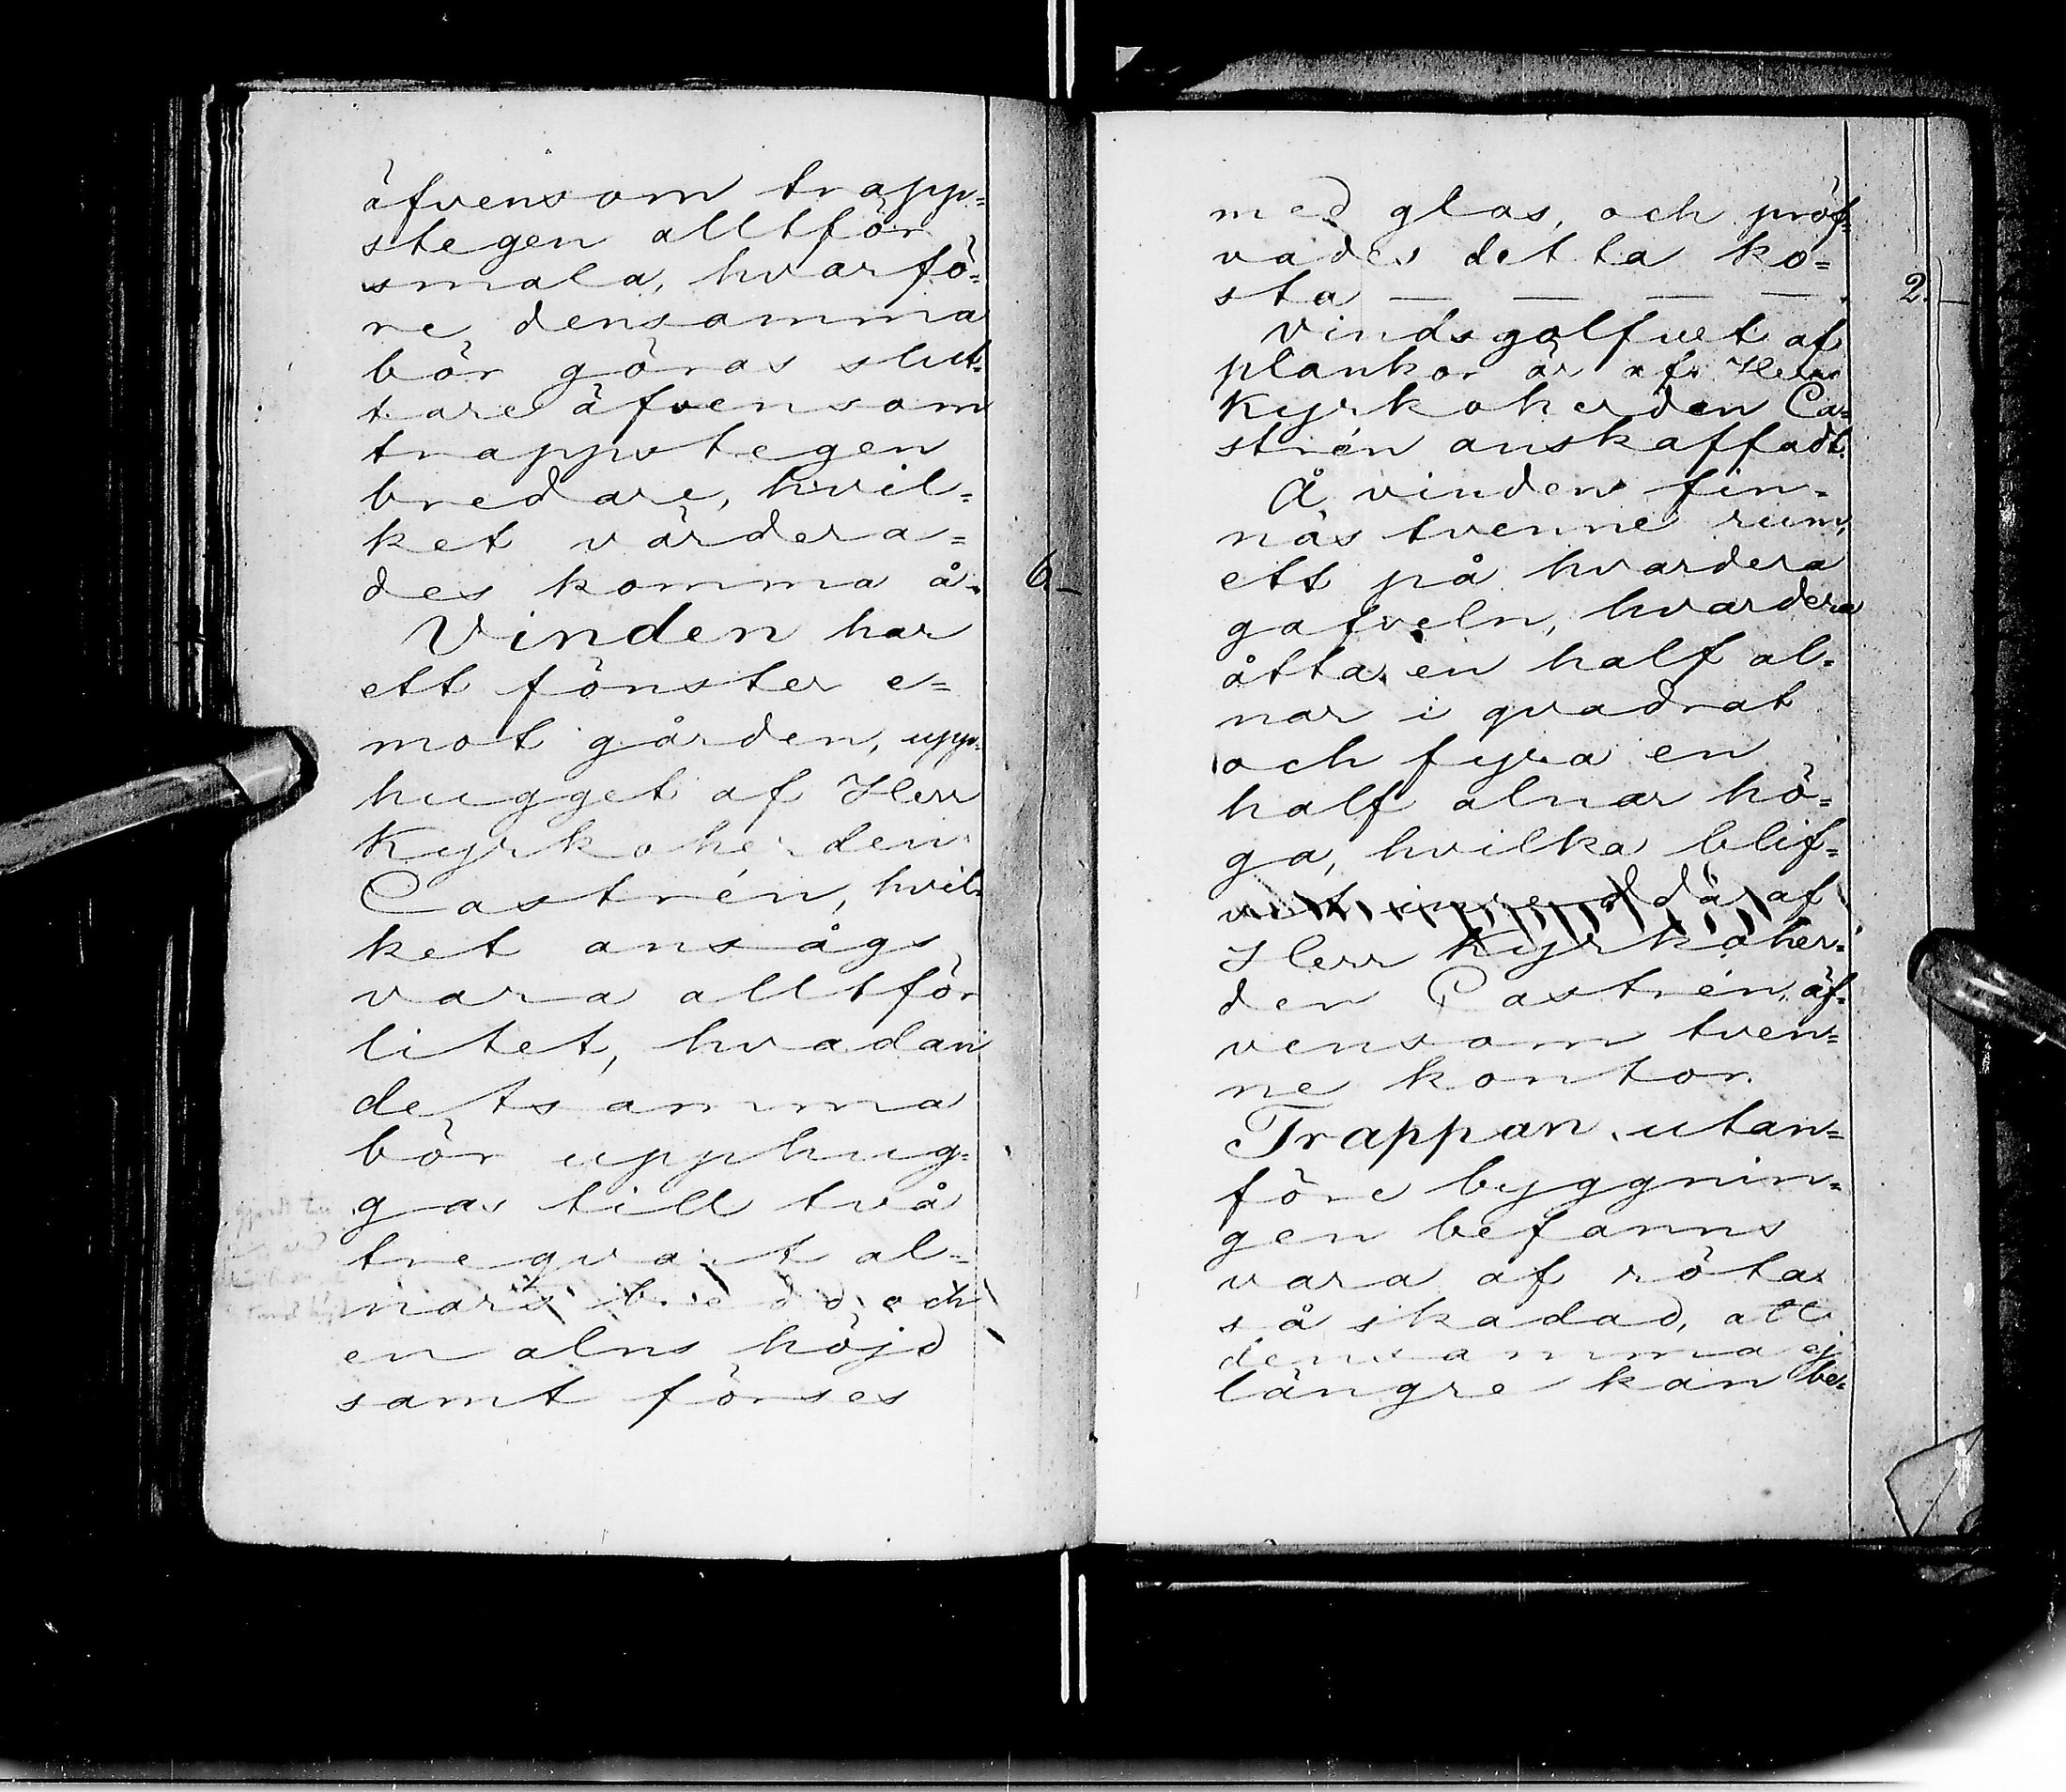 äfvensom trapp=
stegen alltför
smala, hvarfö=
re densamma
bör göras slut=
tare äfvensom
trappstegen
bredare, hvil=
ket värdera=
des komma å. 6.–
Vinden har
ett fönster e=
mot gården, upp=
hugget af Herr
Kyrkoherden
Castrén, hvil=
ket ansågs
vara alltför
litet, hvadan
detsamma
bör upphug=
gas till två
tre qvart al=
nars bredd och
en alns höjd
samt förses
med glas, och pröf=
vades detta ko=
sta — — — —. 2.–
Vindsgolfvet af
plankor är af Herr
Kyrkoherden Ca=
strén anskaffadt.
Å vinden fin=
nas tvenne rum,
ett på hvardera
gafveln, hvardera
åtta en half al=
nar i qvadrat
och fyra en
half alnar hö=
ga, hvilka blif=
vit af
Herr Kyrkoher=
den Castrén, äf=
vensom tven=
ne kontor.
Trappan utan=
före byggnin=
gen befanns
vara af röta
så skadad, att
densamma ej
längre kan be=